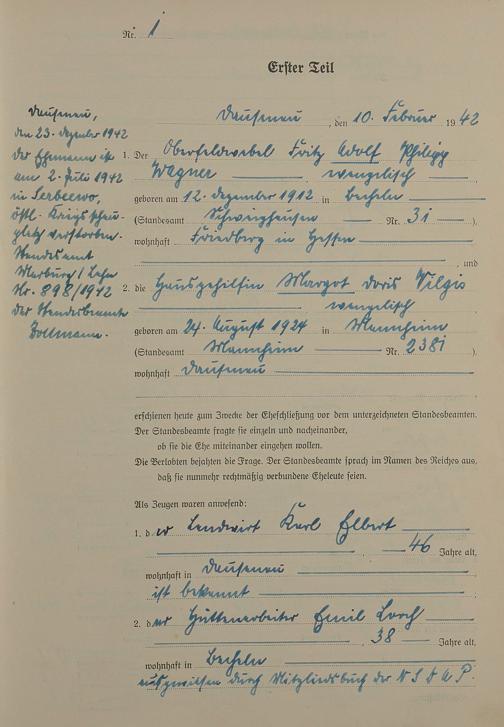 Nr. 1
Erster Teil
Dausenau, den 10. Februar 1942
1. Der Oberfeldwebel Fritz Adolf Philipp
Wagner evangelisch
geboren am 12. Dezember 1912 in Becheln
(Standesamt Schweighausen Nr. 31).
wohnhaft Friedberg in Hessen
, und
2. die Hausgehilfin Margot Doris Vilgis
evangelisch
geboren am 24. August 1924 in Mannheim
(Standesamt Mannheim Nr. 2381).
wohnhaft Dausenau
erschienen heute zum Zwecke der Eheschließung vor dem unterzeichneten Standesbeamten.
Der Standesbeamte fragte sie einzeln und nacheinander,
ob sie die Ehe miteinander eingehen wollen.
Die Verlobten bejahten die Frage. Der Standesbeamte sprach im Namen des Reiches aus,
daß sie nunmehr rechtmäßig verbundene Eheleute seien.
Als Zeugen waren anwesend:
1. der Landwirt Karl Elbert
, 46 Jahre alt,
wohnhaft in Dausenau
ist bekannt
2. der Hüttenarbeiter Emil Lorch
, 38 Jahre alt,
wohnhaft in Becheln
ausgewiesen durch Mitgliedsbuch der NSDAP.
Dausenau,
den 23. Dezember 1942
Der Ehemann ist
am 2. Juli 1942
in
östl. Kriegsschau-
platz verstorben.
Standesamt
Marburg/Lahn
Nr. 898/1942
Der Standesbeamte
Bollmann.